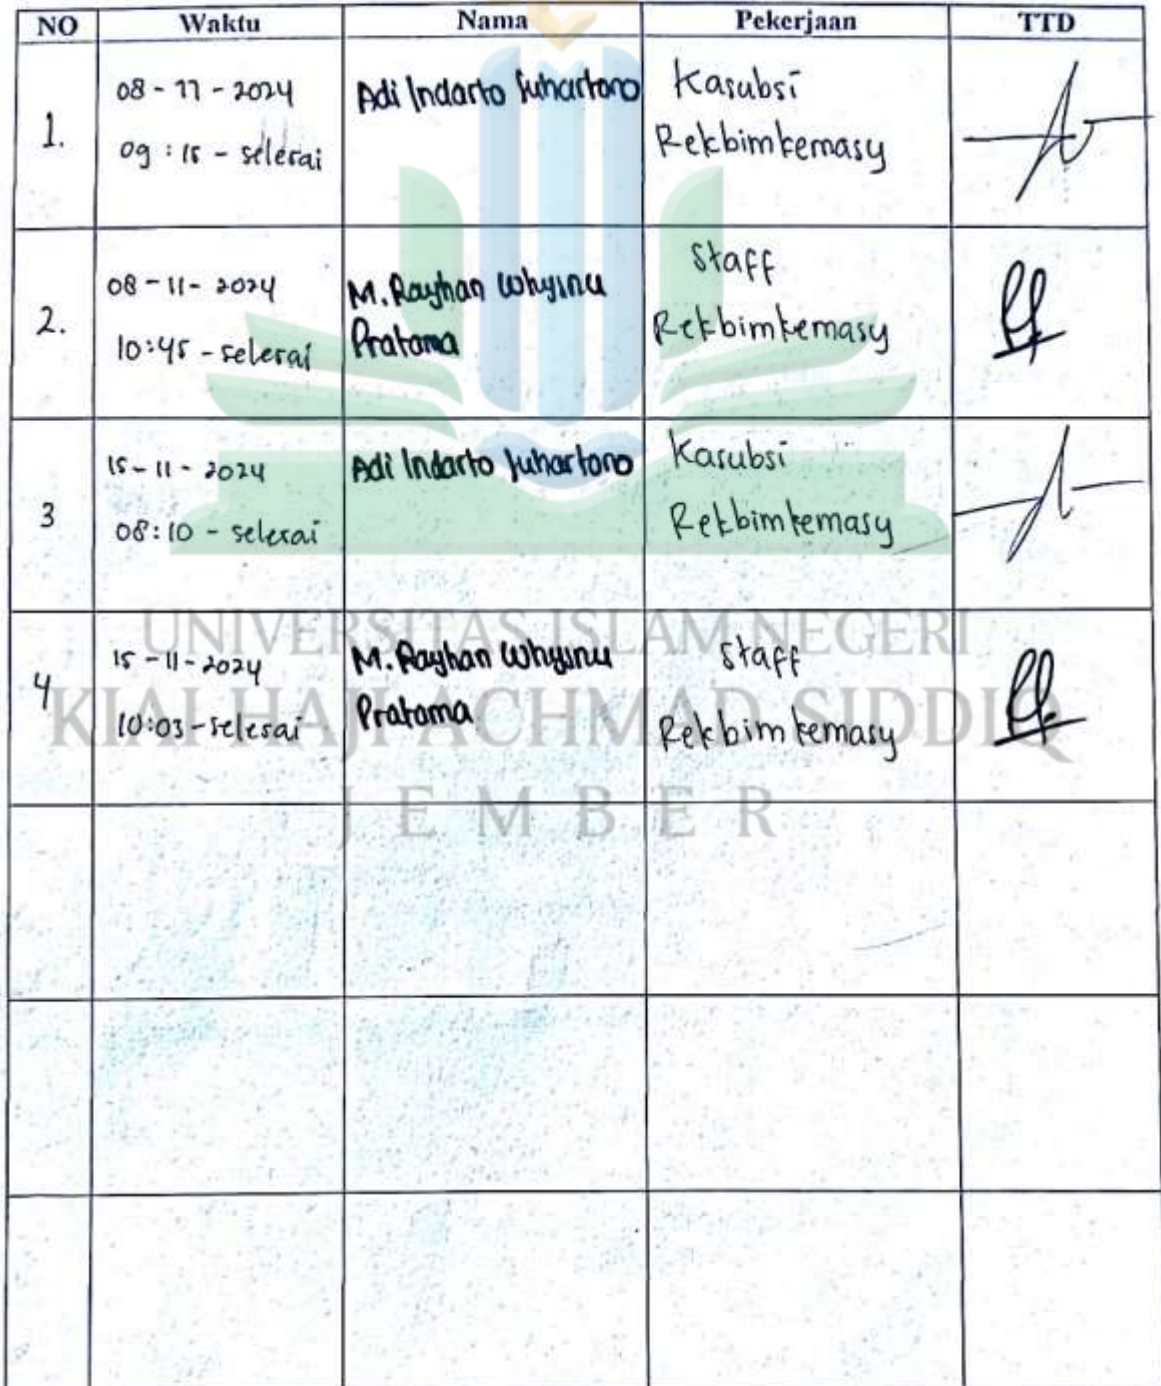 NO Waktu Nama Pekerjaan TTD
1.
08 - 11 - 2024
09 : 15 - selesai
Adi Indarto Suhartono
Kasubsi
Rekbimkemasy
2.
08 - 11 - 2024
10:45 - selesai
M. Rayhan Whysnu
Pratama
Staff
Rekbimkemasy
3
15 - 11 - 2024
08:10 - selesai
Adi Indarto Suhartono
Kasubsi
Rekbimkemasy
4
15 - 11 - 2024
10:03 - selesai
M. Rayhan Whysnu
Pratama
Staff
Rekbimkemasy
UNIVERSITAS ISLAM NEGERI
KIAI HAJI ACHMAD SIDDIQ
JEMBER